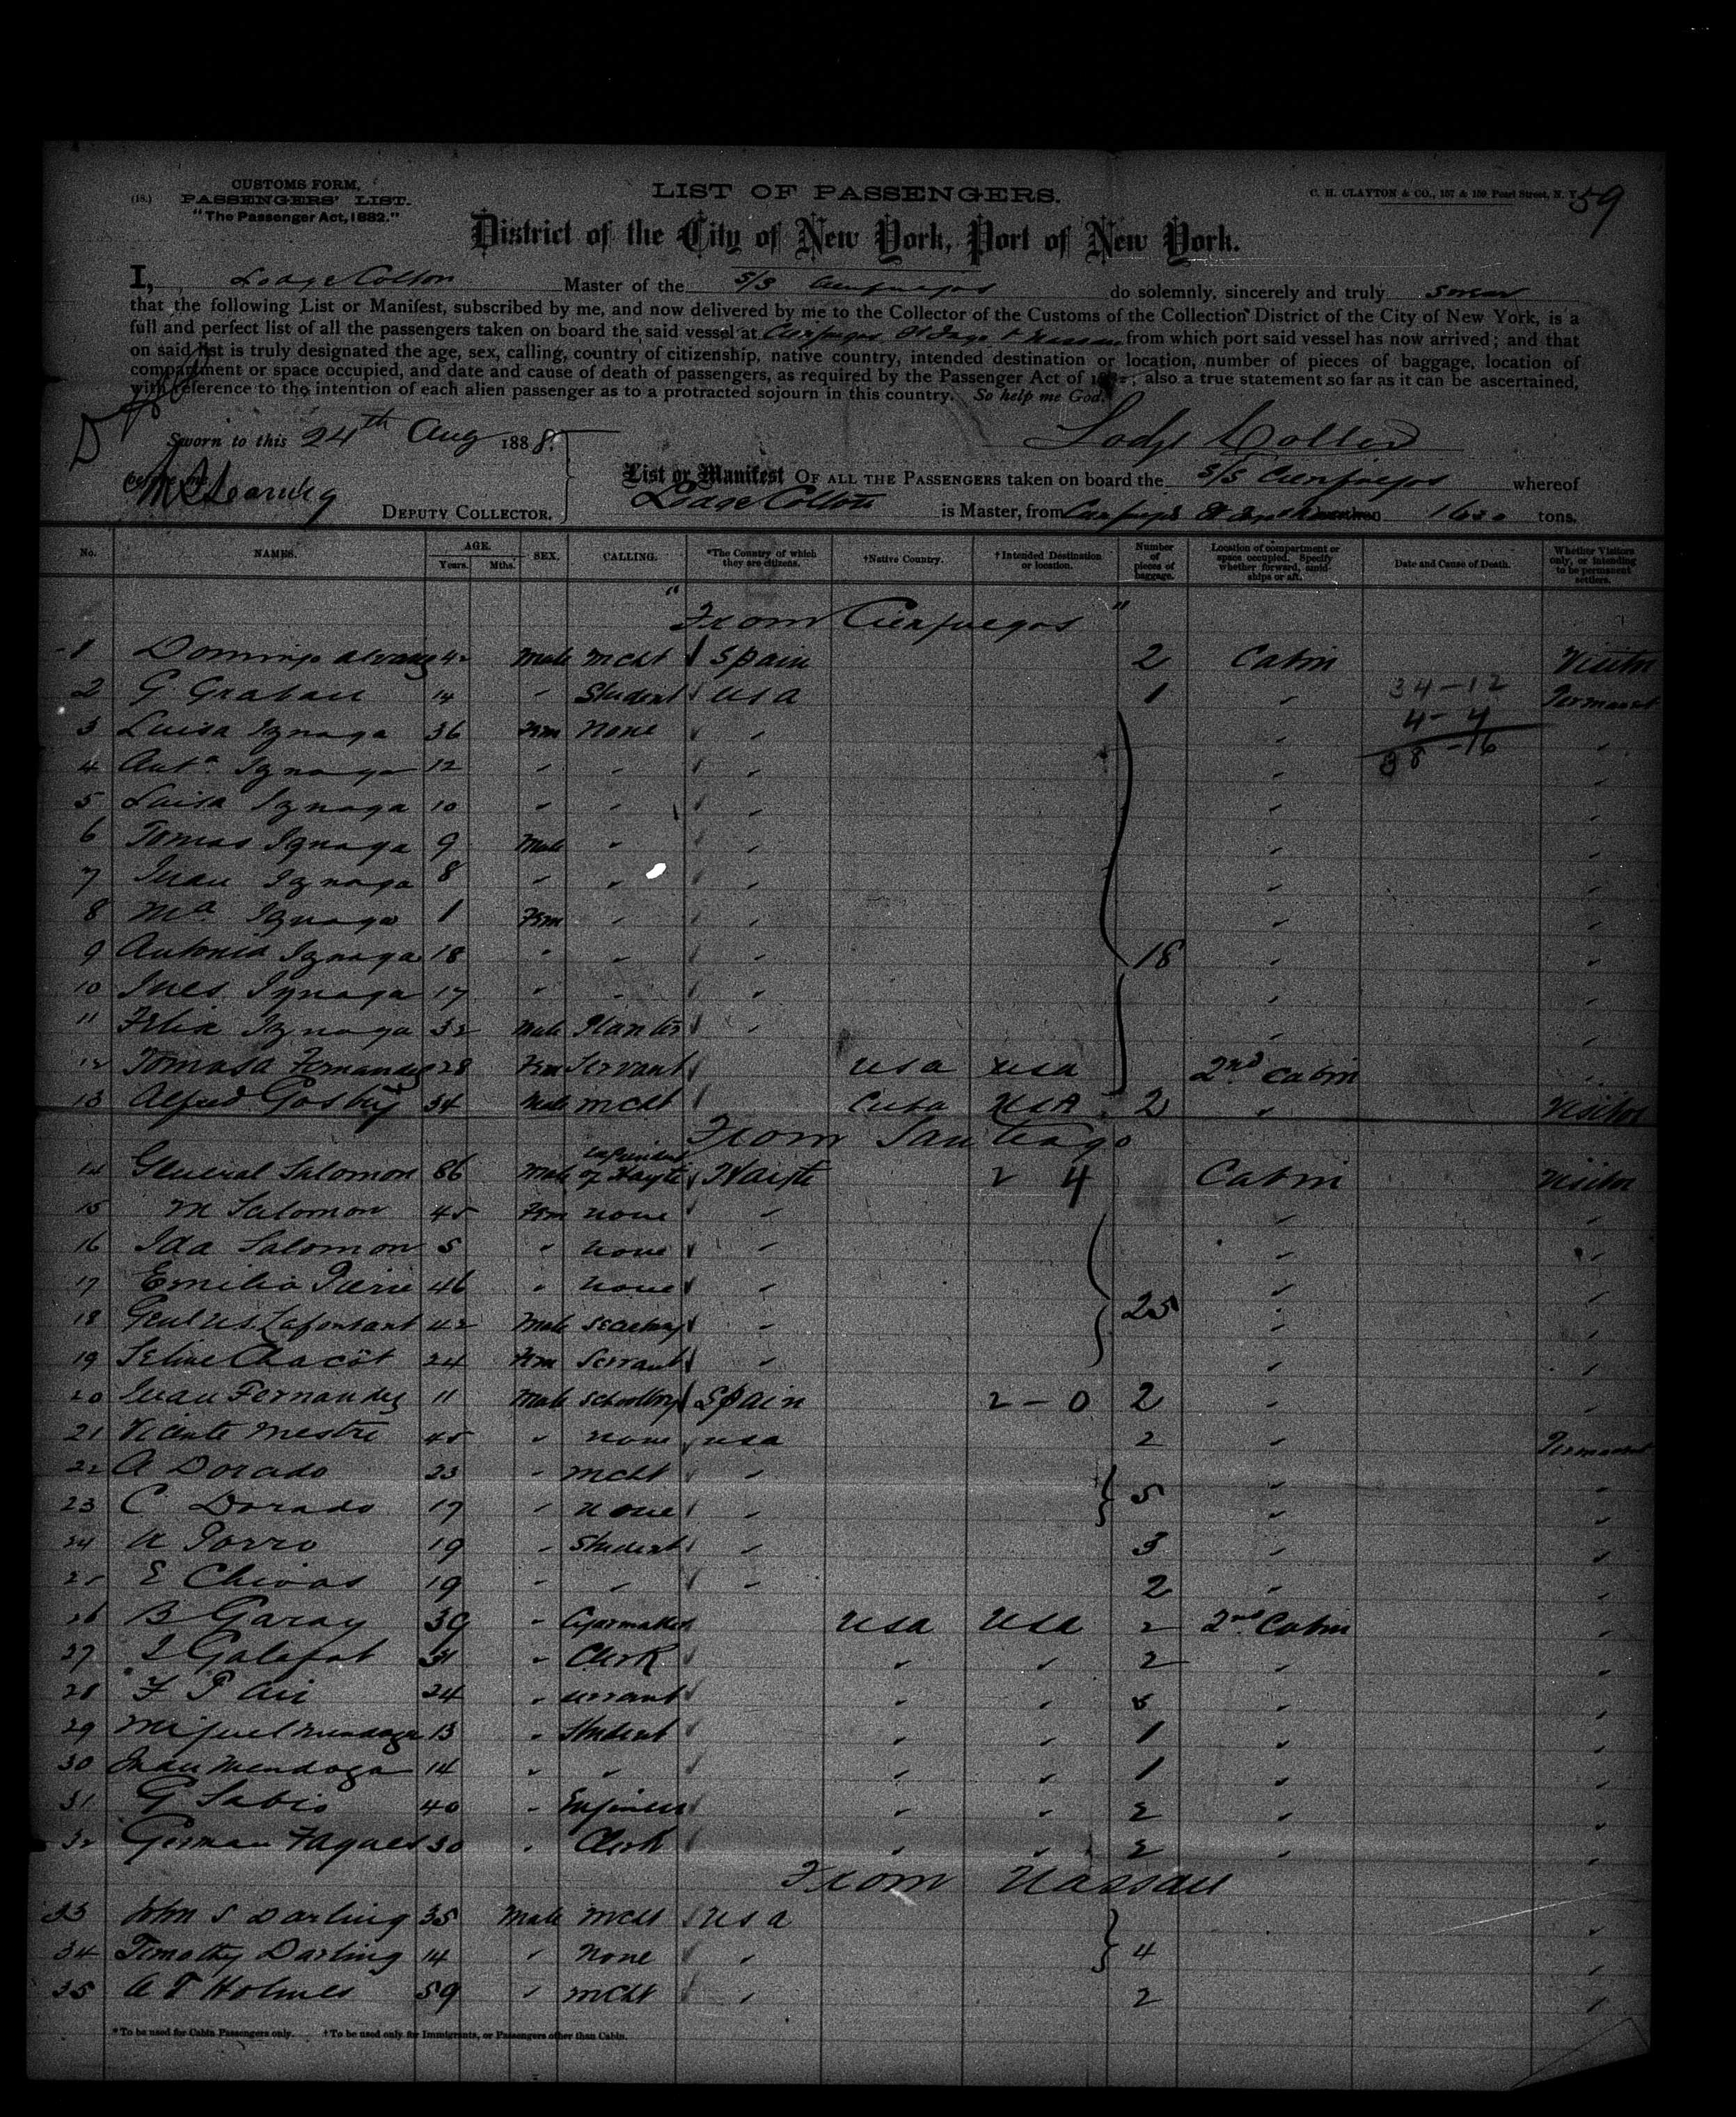 CUSTOMS FORM,
(18.) PASSENGERS' LIST.
"The Passenger Act, 1882."
LIST OF PASSENGERS.
C. H. CLAYTON & CO., 157 & 159 Pearl Street, N. Y.
59
District of the City of New York, Port of New York.
I, Lodge Colton Master of the S/S Cienfuegos do solemnly, sincerely and truly swear
that the following List or Manifest, subscribed by me, and now delivered by me to the Collector of the Customs of the Collection District of the City of New York, is a
full and perfect list of all the passengers taken on board the said vessel at Cienfuegos St Jago & Nassau from which port said vessel has now arrived; and that
on said list is truly designated the age, sex, calling, country of citizenship, native country, intended destination or location, number of pieces of baggage, location of
compartment or space occupied, and date and cause of death of passengers, as required by the Passenger Act of ; also a true statement so far as it can be ascertained,
with reference to the intention of each alien passenger as to a protracted sojourn in this country. So help me God.
Sworn to this 24th Aug 1888. Lodge Colton
before me
List or Manifest OF ALL THE PASSENGERS taken on board the S/S Cienfuegos whereof
DEPUTY COLLECTOR. Lodge Colton is Master, from Cienfuegos St Jago 1630 tons.
No. NAMES. AGE. Years. Mths. SEX. CALLING. *The Country of which they are citizens. †Native Country. †Intended Destination or location. Number of pieces of baggage. Location of compartment or space occupied. Specify whether forward, amidships or aft. Date and Cause of Death. Whether Visitors only, or intending to be permanent settlers.
"From Cienfuegos"
1 Domingo 42 Male Mcht Spain 2 Cabin Visitor
2 G. 14 " Student USA 1 " 34-12 Permanent
3 Luisa Iznaga 36 Fem None " " 4-4 "
4 Anta Iznaga 12 " " " " 38-16 "
5 Luisa Iznaga 10 " " " " "
6 Tomas Iznaga 9 Male " " " "
7 Juan Iznaga 8 " " " " "
8 Ma Iznaga 1 Fem " " " "
9 Antonia Iznaga 18 " " " 18 " "
10 Ines Iznaga 17 " " " " "
11 Felix Iznaga 32 Male Planter " " "
12 Tomasa Fernandez 28 Fem Servant USA USA 2nd Cabin "
13 Alfred 34 Male Mcht Cuba USA 2 " Visitor
From Santiago
14 General Salomon 86 Male of Hayti Haiti 2 4 Cabin Visitor
15 M Salomon 45 Fem none " " "
16 Ida Salomon 5 " none " " "
17 Emilia 46 " none " " "
18 Lafontant 42 Male Secretary " 25 " "
19 24 Fem Servant " " "
20 Juan Fernandez 11 Male Schoolboy Spain 2 - 0 2 " "
21 Vicente Mestre 45 " none USA 2 " Permanent
22 A Dorado 23 " Mcht " " "
23 C Dorado 17 " none " 5 " "
24 19 " Student " 3 " "
25 E Chivas 19 " " " 2 " "
26 B Garay 39 " Cigarmaker USA USA 2 2nd Cabin "
27 Galafat " Clerk " " 2 " "
28 24 " servant " " " "
29 Miguel Mendoza 13 " Student " " 1 " "
30 Juan Mendoza 14 " " " " 1 " "
31 G Sabio 40 " Engineer " " 2 " "
32 German 30 " Clerk " " 2 " "
From Nassau
33 John S Darling 35 Male Mcht USA "
34 Timothy Darling 14 " None " 4 "
35 A T Holmes 59 " Mcht " 2 "
*To be used for Cabin Passengers only. †To be used only for Immigrants, or Passengers other than Cabin.